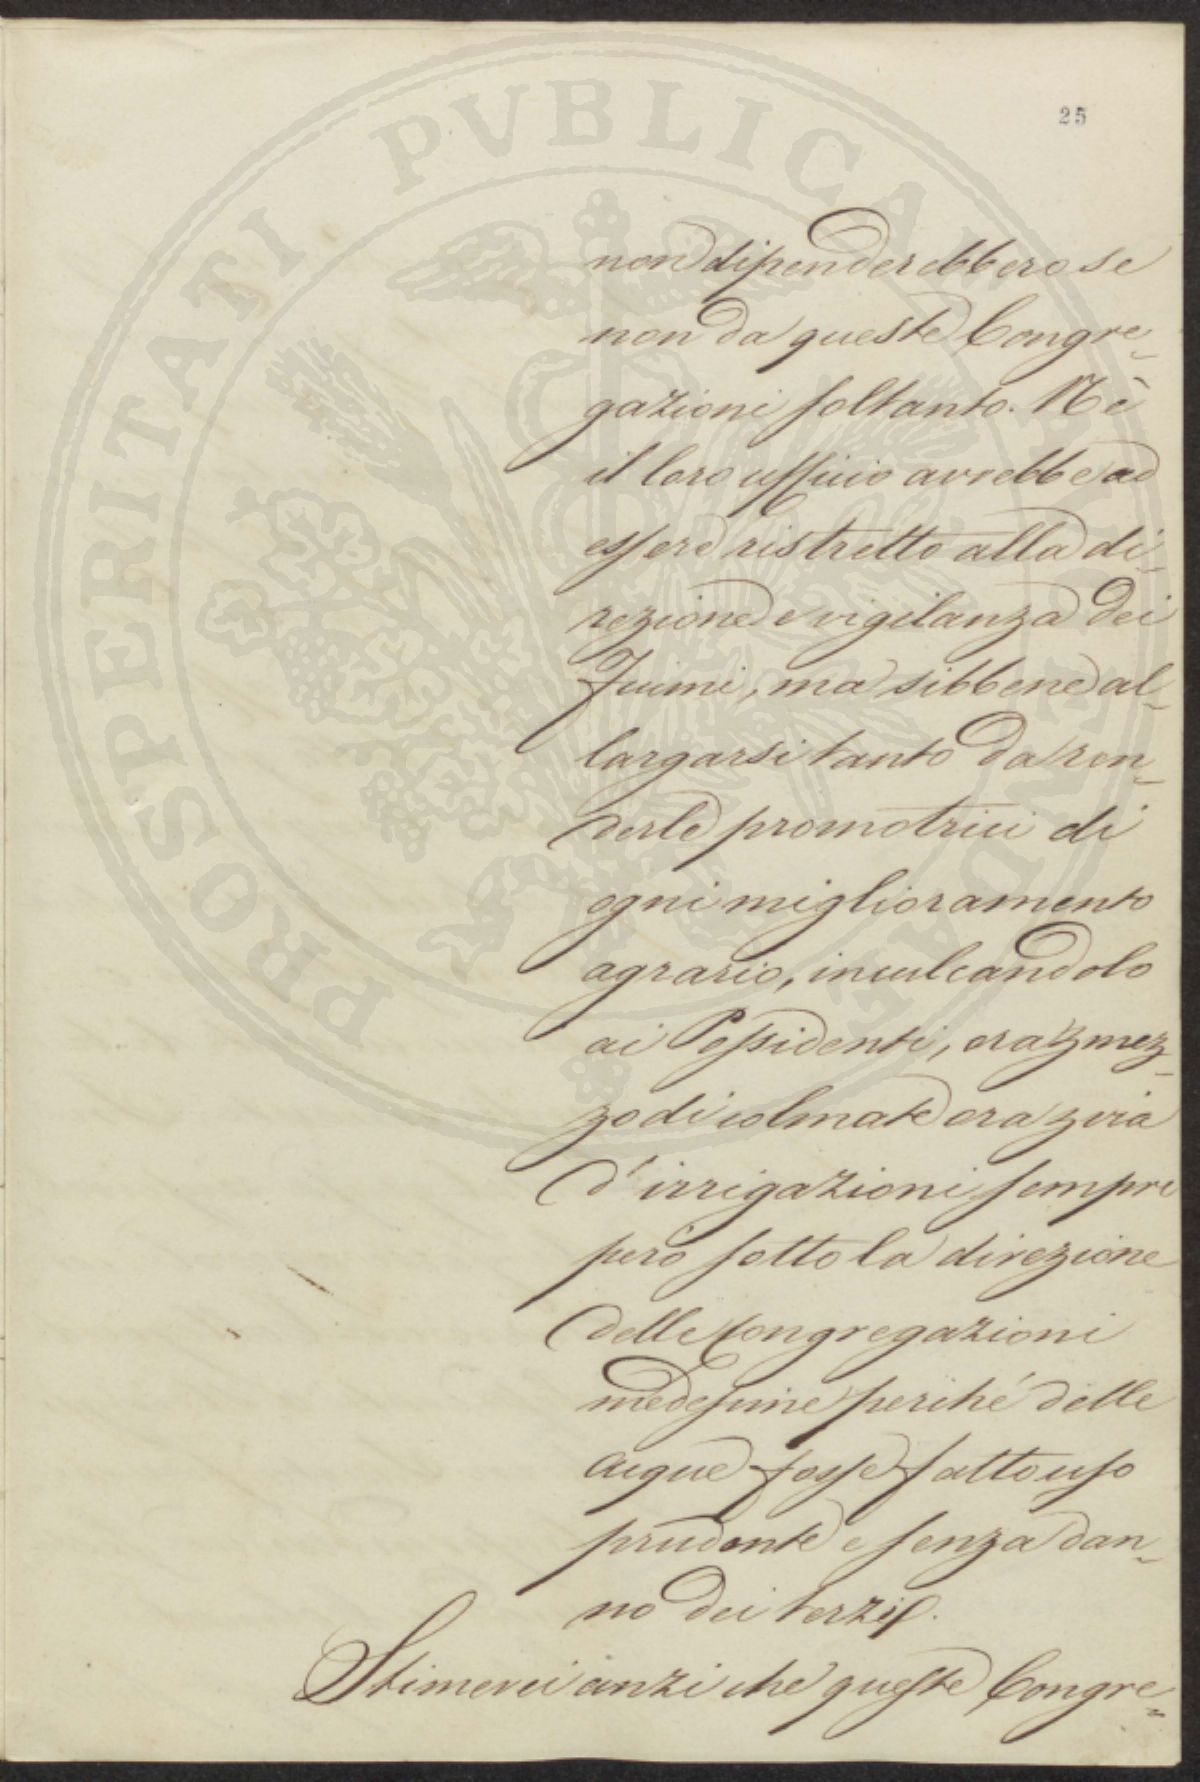 25
non dipenderebbero se
non da queste Congre-
gazioni soltanto. Nè
il loro ufficio avrebbe ad
essere ristretto alla di-
rezione e vigilanza dei
Fiumi, ma sibbene al-
largarsi tanto da ren-
derle promotrici di
ogni miglioramento
agrario, inculcandolo
ai Possidenti, ora mez-
zo di colmate ora via
d'irrigazioni sempre
però sotto la direzione
delle Congregazioni
medesime perché delle
acque fosse fatto uso
prudente e senza dan-
no dei terzi.
Stimerei anzi che queste Congre-
PROSPERITATI PVBLICAE AVGENDAE